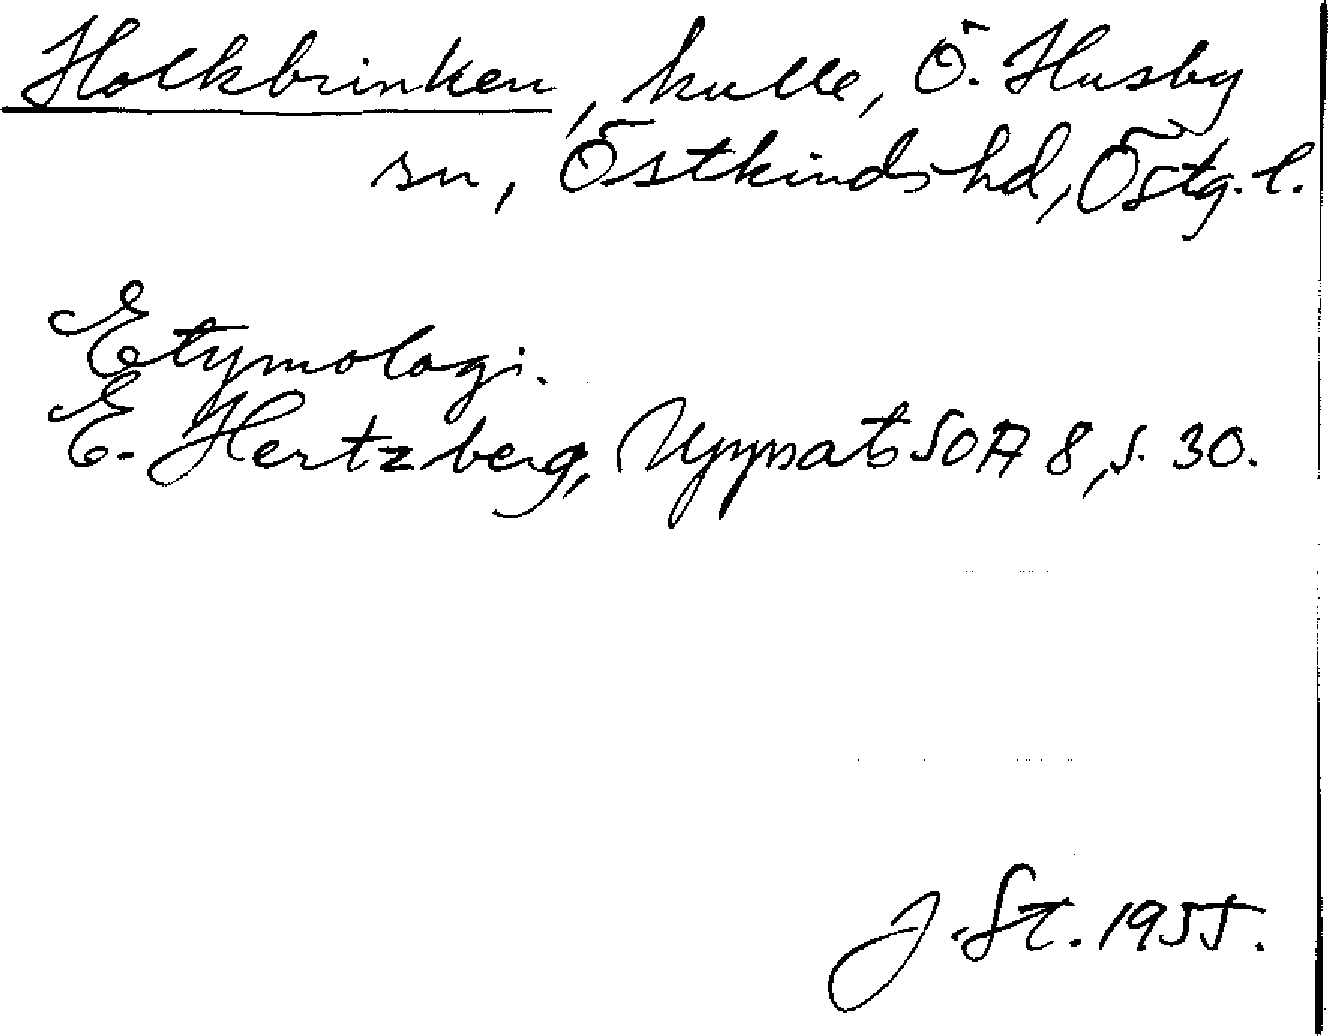 Holkbrinken, kulle, Ö. Husby
sn, Östkinds hd, Östg. l.
Etymologi.
E. Hertzberg, Uppsats SOA 8, s. 30.
J. St. 1955.